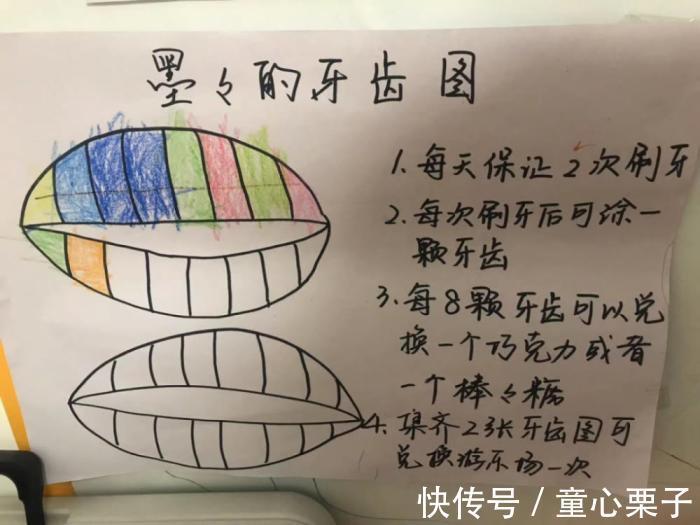 墨々的牙齿图
1. 每天保证2次刷牙
2. 每次刷牙后可涂一
颗牙齿
3. 每8颗牙齿可以兑
换一个巧克力或者
一个棒々糖
4. 集齐23张牙齿图可
兑换游乐场一次
快传号 / 童心栗子